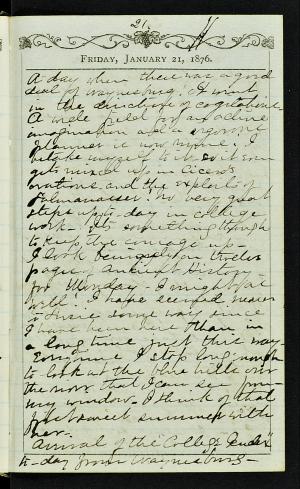 21.
FRIDAY, JANUARY 21, 1876.
A day when there was a good
deal of Waynesburg. I went
in the direction of cogitations.
A wide field for an active
imagination and vigorous
planner is now mine. I
betake myself to it so it soon
gets mixed up in Cicero's
orations and the exploits of
Salmanasser. No very great
steps up to-day in college
work. Its something though
to keep the courage up.
I look being upon twelve
pages of Ancient History
for Monday. I might as
well. I have seemed nearer
to some way since
I have been here than in
a long time just this way.
Everytime I stop long enough
to look at the blue hills over
the river that I can see from
my window I think of that
last sweet summer with
her.
Arrival of the College
to-day from Waynesburg.